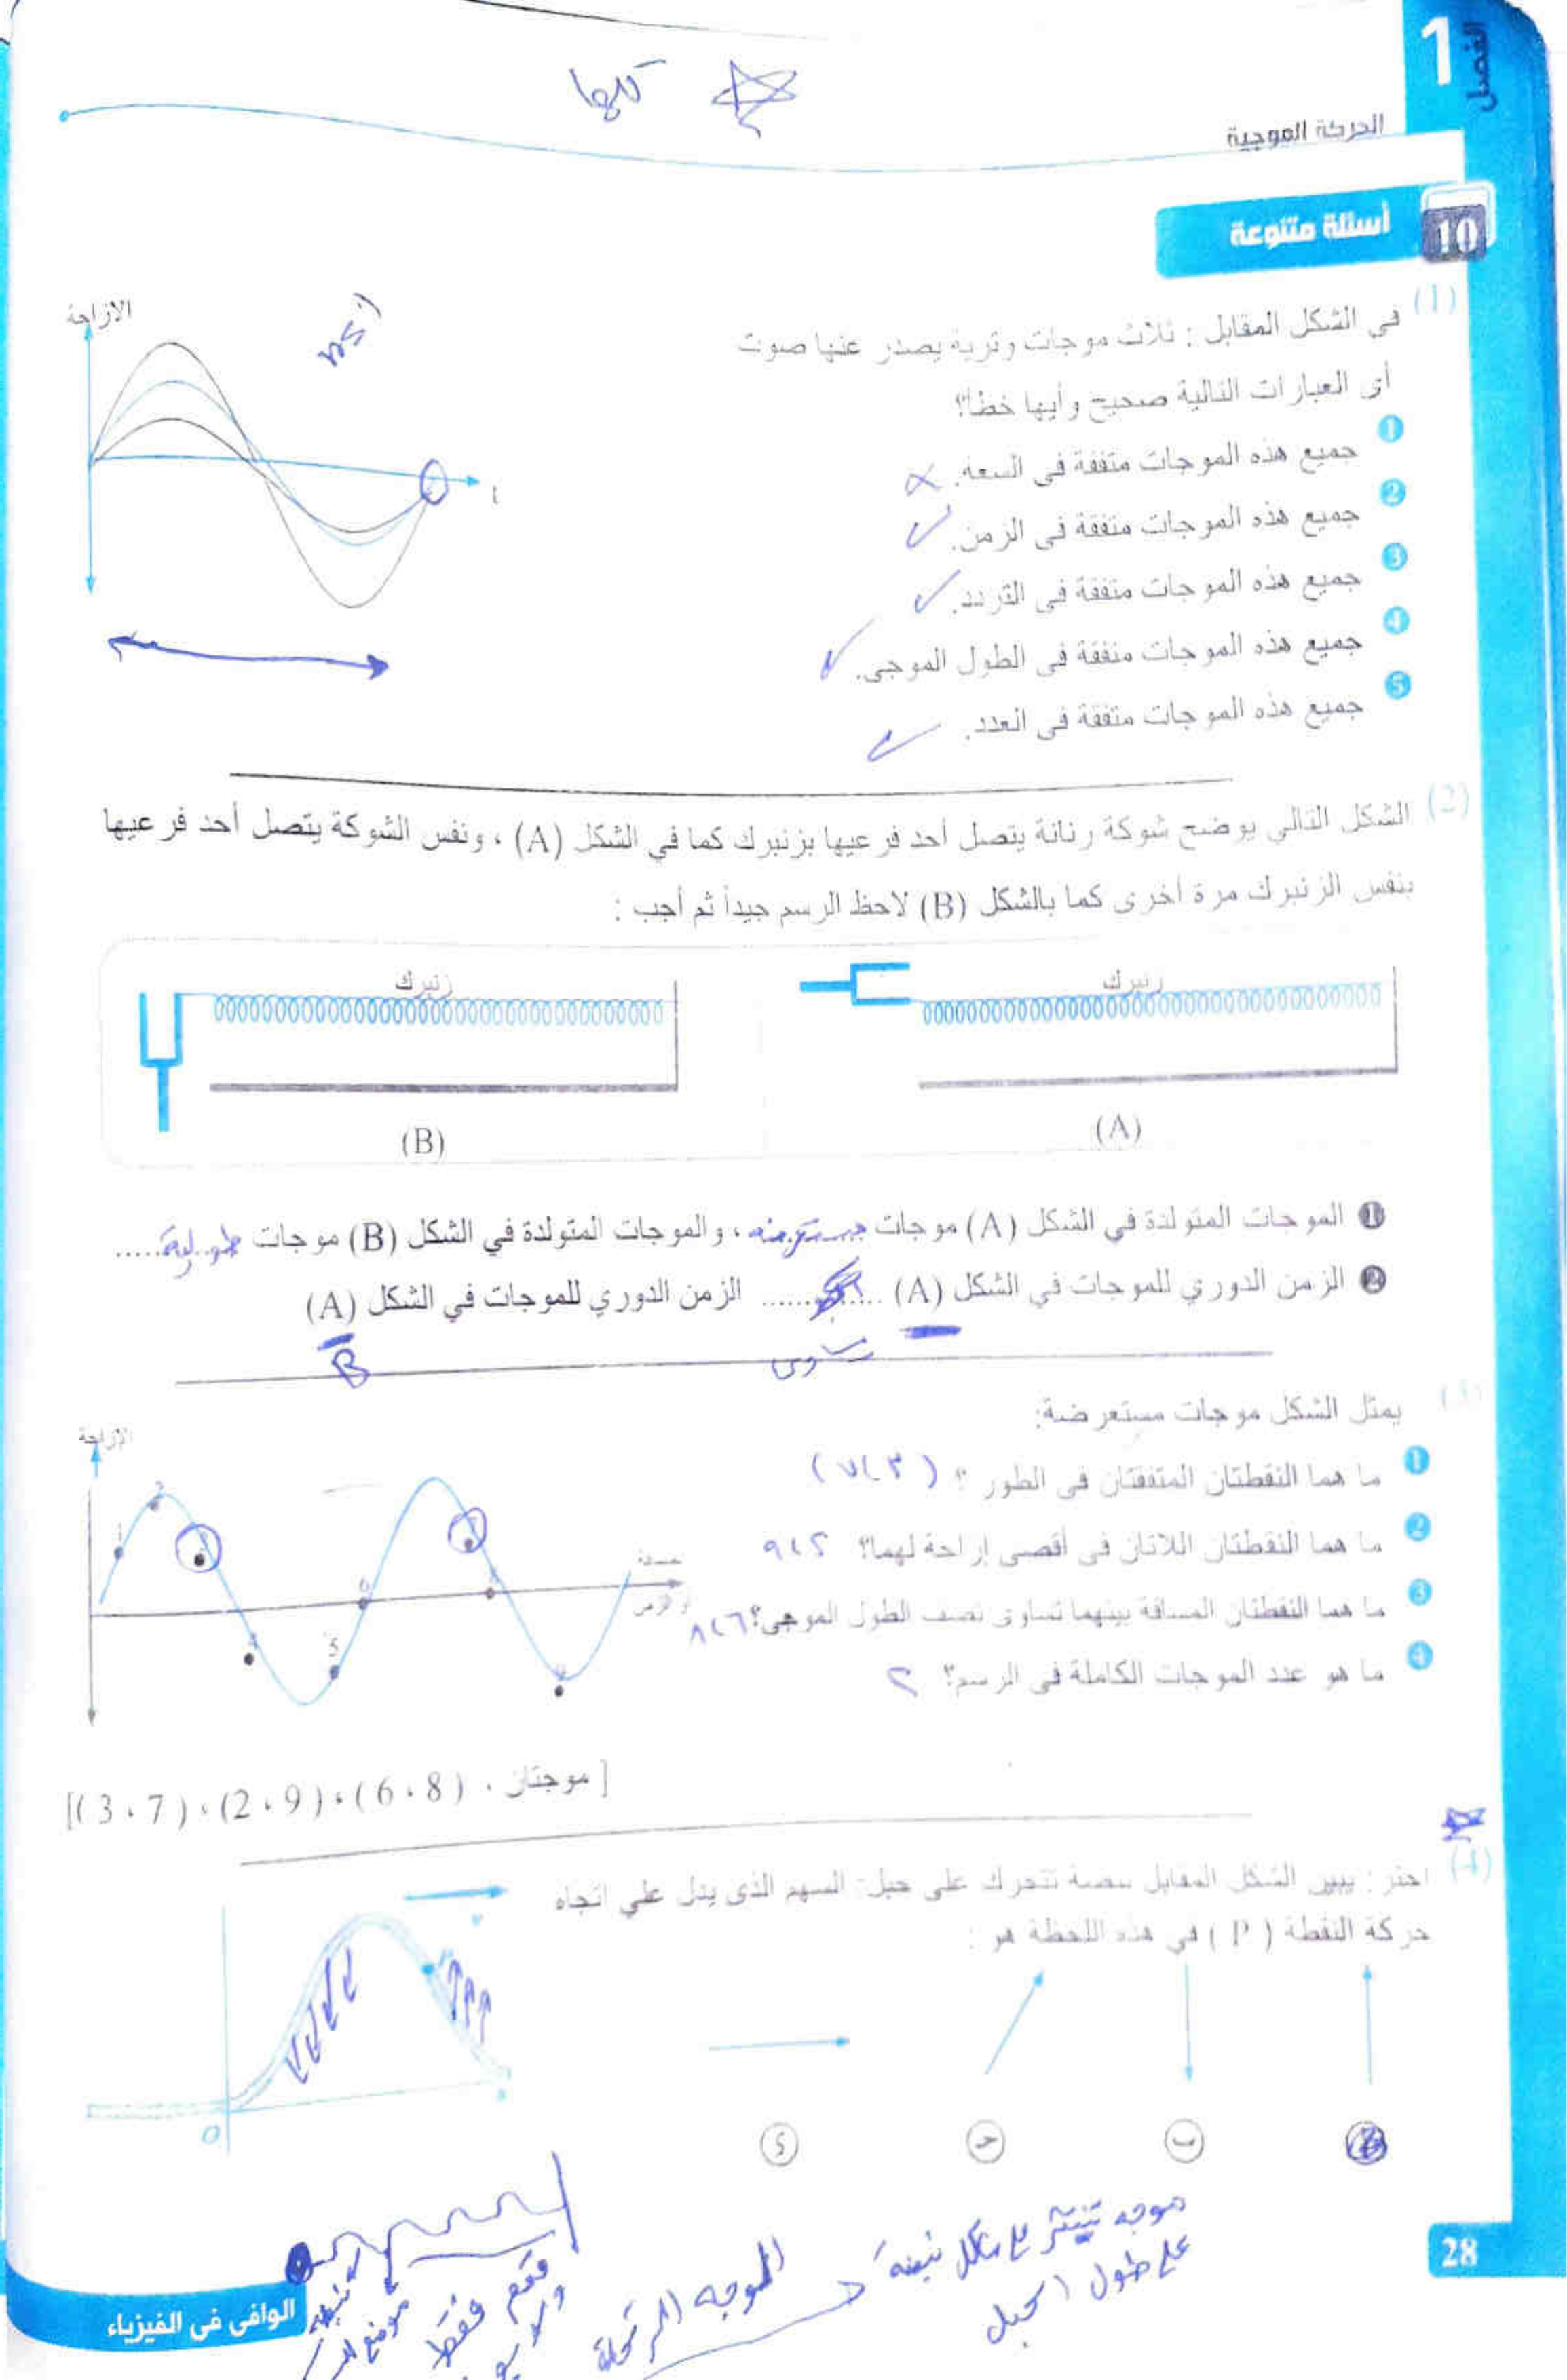 الفصل 1
كلها
الحركة الموجية
10 أسئلة متنوعة
(1) فى الشكل المقابل : ثلاث موجات وترية يصدر عنها صوت
أى العبارات التالية صحيح وأيها خطأ؟
1 جميع هذه الموجات متفقة فى السعة.
2 جميع هذه الموجات متفقة فى الزمن.
3 جميع هذه الموجات متفقة فى التردد.
4 جميع هذه الموجات متفقة فى الطول الموجى.
5 جميع هذه الموجات متفقة فى العدد.
الازاحة
t
(2) الشكل التالي يوضح شوكة رنانة يتصل أحد فرعيها بزنبرك كما في الشكل (A) ، ونفس الشوكة يتصل أحد فرعيها
بنفس الزنبرك مرة أخرى كما بالشكل (B) لاحظ الرسم جيداً ثم أجب :
زنبرك
زنبرك
(A)
(B)
1 الموجات المتولدة في الشكل (A) موجات مستعرضه ، والموجات المتولدة في الشكل (B) موجات طولية.....
2 الزمن الدوري للموجات في الشكل (A) ............ الزمن الدوري للموجات في الشكل (A)
يساوى
B
(3) يمثل الشكل موجات مستعرضة:
1 ما هما النقطتان المتفقتان فى الطور ؟ (٣،٧)
2 ما هما النقطتان اللاتان فى أقصى إزاحة لهما؟ ٢،٩
3 ما هما النقطتان المسافة بينهما تساوى نصف الطول الموجى؟ ٦،٨
4 ما هو عدد الموجات الكاملة فى الرسم؟ ٢
الإزاحة
1
2
5
6
مسافة
أو الزمن
[(3 ، 7) ، (2 ، 9) ، (6 ، 8) ، موجتان ]
(4) اختر : يبين الشكل المقابل نبضة تتحرك على حبل: السهم الذى يدل على اتجاه
حركة النقطة ( P ) في هذه اللحظة هو :
v
O
ب
حـ
د
موجه تنتشر ع شكل نبضه
على طول الحبل
الموجه المرتحلة
قمم فقط
موضع
28
الوافى فى الفيزياء